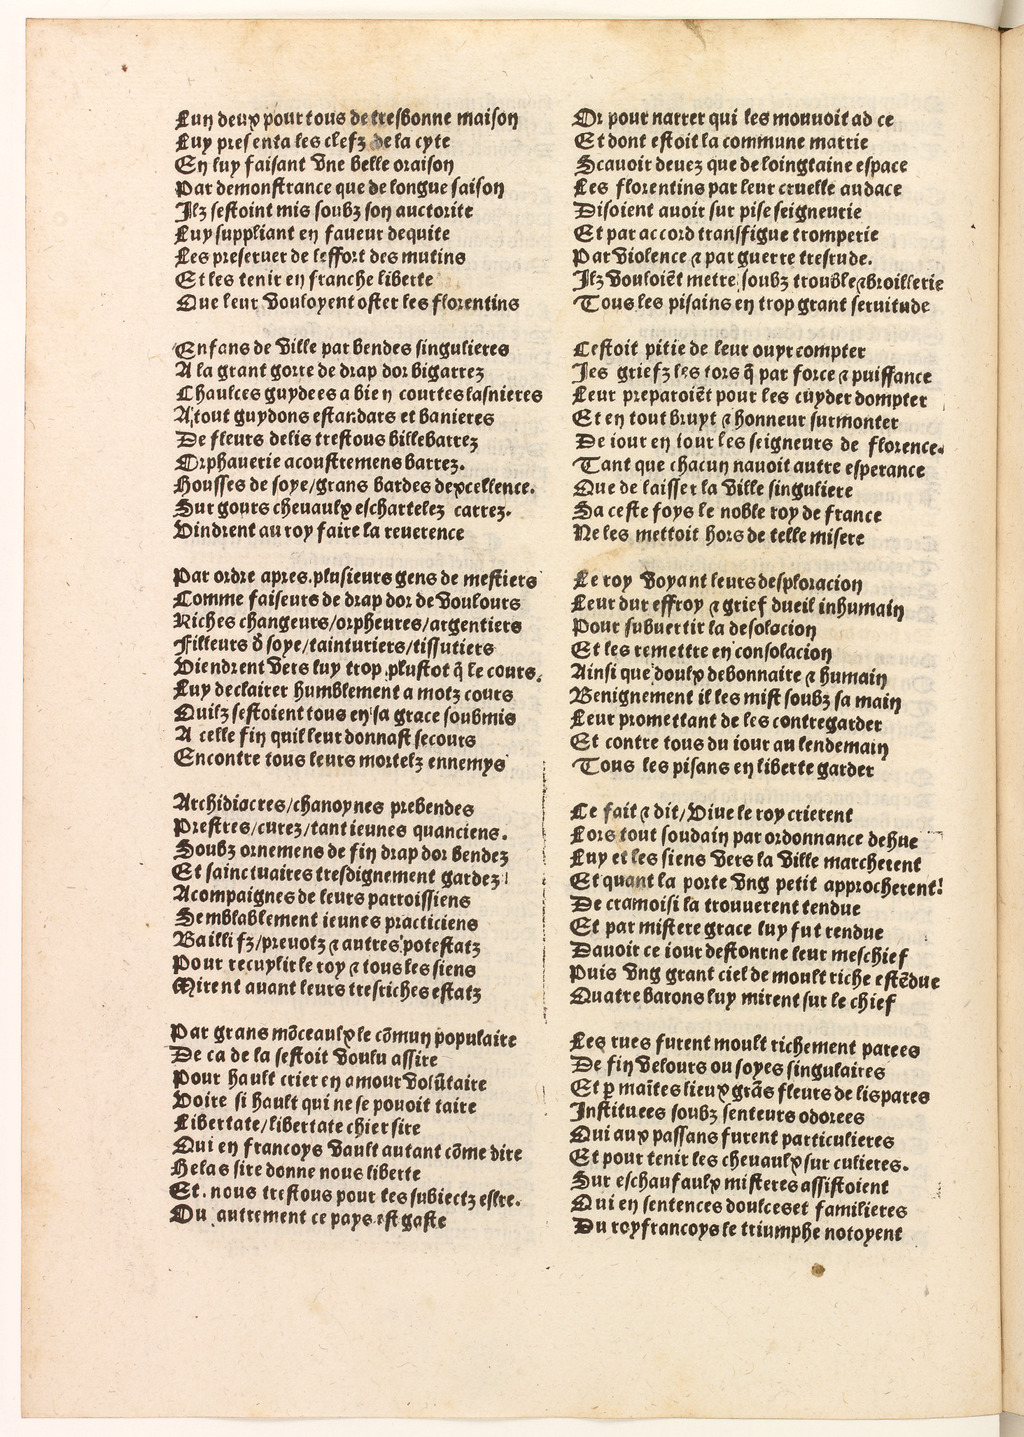 Lun deux pour tous de tresbonne maison
Luy presenta les clefz de la cyte
En luy faisant vne belle oraison
Par demonstrance que de longue saison
Ilz sestoint mis soubz son auctorite
Luy suppliant en faueur dequite
Les preseruer de leffort des mutins
Et les tenir en franche liberte
Que leur vouloyent oster les florentins

Enfans de ville par bendes singulieres
A la grant gorre de drap dor bigarrez
Chaulces guydees a bien courtes lasnieres
A tout guydons estandars et banieres
De fleurs delis trestous billebarrez
Orphauerie acoustremens barrez.
Housses de soye/grans bardes dexcellence.
Sur gours cheuaulx eschartelez carrez.
Vindrent au roy faire la reuerence

Par ordre apres plusieurs gens de mestiers
Comme faiseurs de drap dor de voulours
Riches changeurs/orpheures/argentiers
Filleurs d̄ soye/tainturiers/tissutiers
Viendrent vers luy trop plustot q̄ le cours.
Luy declairer humblement a motz cours
Quilz sestoient tous en sa grace soubmis
A celle fin quil leur donnast secours
Encontre tous leurs mortelz ennemys

Archidiacres/chanoynes prebendes
Prestres/curez/tant ieunes quanciens.
Soubz ornemens de fin drap dor bendez
Et sainctuaires tresdignement gardez
Acompaignes de leurs parroissiens
Semblablement ieunes practiciens
Baillifz/preuotz ⁊ autres potestatz
Pour recuylir le roy ⁊ tous les siens
Mirent auant leurs tresriches estatz

Par grans mōceaulx le cōmun populaire
De ca de la sestoit voulu assire
Pour hault crier en amour volūtaire
Voire si hault qui ne se pouoit taire
Libertate/libertate chier sire
Qui en francoys vault autant cōme dire
Helas sire donne nous liberte
Et. nous trestous pour tes subiectz estre.
Ou autrement ce pays est gaste

Or pour narrer qui les mouuoit ad ce
Et dont estoit la commune marrie
Scauoir deuez que de loingtaine espace
Les florentins par leur cruelle audace
Disoient auoir sur pise seigneurie
Et par accord transfigue tromperie
Par violence ⁊ par guerre tresrude.
Ilz vouloiēt metre soubz trouble ⁊ broillerie
Tous les pisains en trop grant seruitude

Cestoit pitie de leur ouyr compter
Ies griefz les tors q̄ par force ⁊ puissance
Leur preparoiēt pour les cuyder dompter
Et en tout bruyt ⁊ honneur surmonter
De iour en iour les seigneurs de florence.
Tant que chacun nauoit autre esperance
Que de laisser la ville singuliere
Sa ceste foys le noble roy de france
Ne les mettoit hors de telle misere

Le roy voyant leurs desploracion
Leur dur effroy ⁊ grief dueil inhumain
Pour subuertir la desolacion
Et les remettre en consolacion
Ainsi que doulx debonnaire ⁊ humain
Benignement il les mist soubz sa main
Leur promettant de les contregarder
Et contre tous du iour au lendemain
Tous les pisans en liberte garder

Ce fait ⁊ dit/viue le roy crierent
Lors tout soudain par ordonnance dehue
Luy et les siens vers la ville marcherent
Et quant la porte vng petit approcherent
De cramoisi la trouuerent tendue
Et par mistere grace luy fut rendue
Dauoir ce iour destorne leur meschief
Puis vng grant ciel de moult riche estēdue
Quatre barons luy mirent sur le chief

Les rues furent moult richement parees
De fin velours ou soyes singulaires
Et p̄ maītes lieux grās fleurs de lis pares
Instituees soubz senteurs odorees
Qui aux passans furent particulieres
Et pour tenir les cheuaulx sur culieres.
Sur eschaufaulx misteres assistoient
Qui en sentences doulces et familieres
Du roy francoys le triumphe notoyent